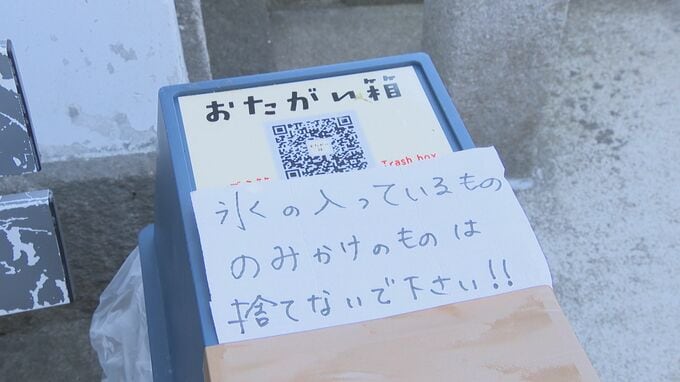 おたがい箱
Trash box
氷の入っているもの
のみかけのものは
捨てないで下さい!!